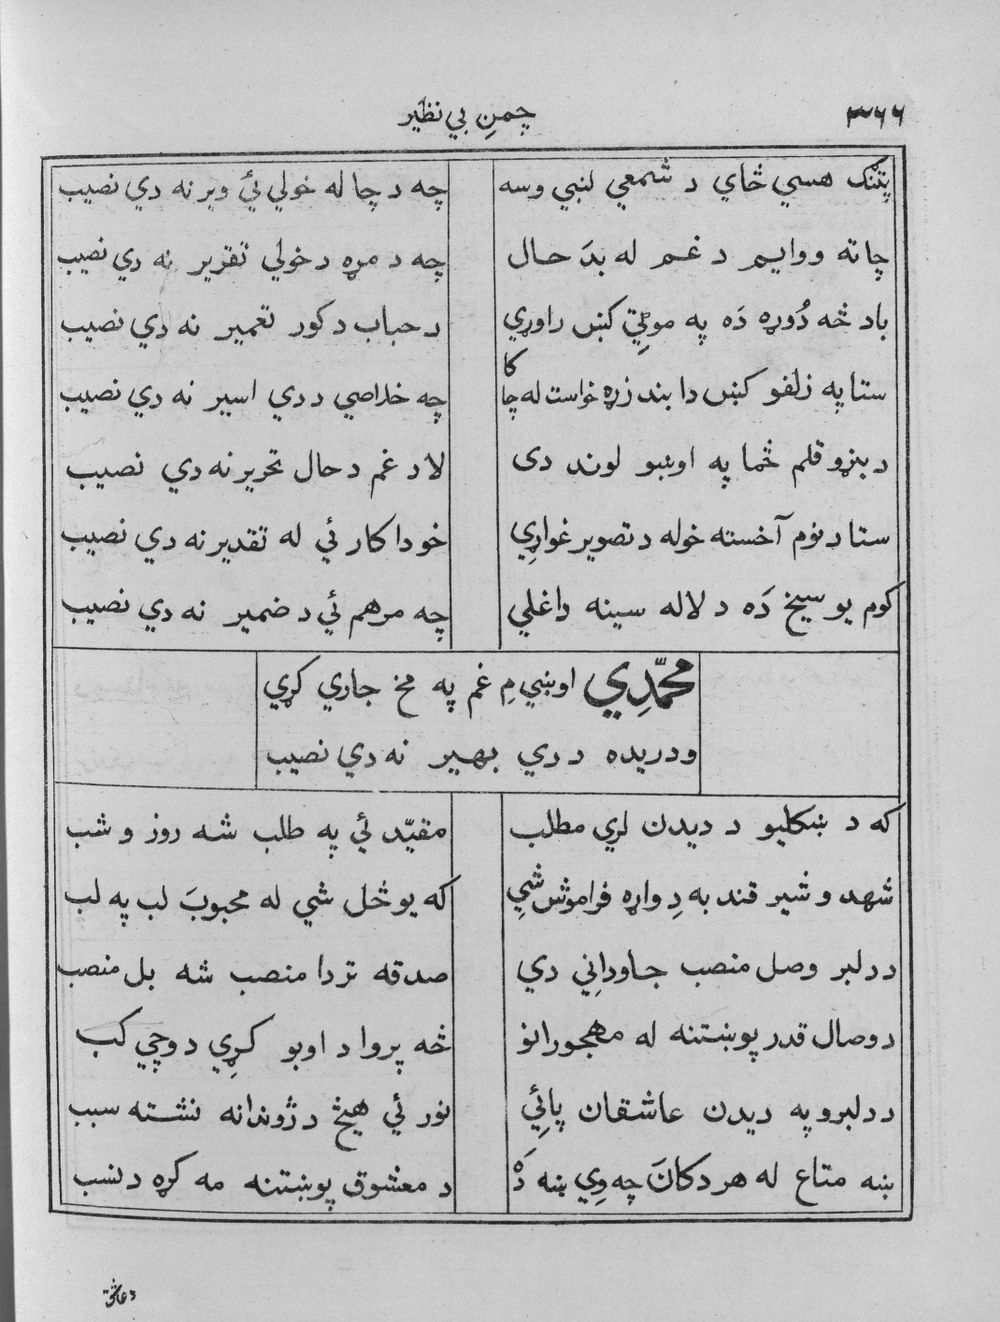 ٣٦٦
چمنِ بي نظير
پتنګ هسي ځاي د شمعي لنبي وسه
چه د چا له خولي ئي وير نه دي نصيب
چاته ووايم د غم له بدَ حال
چه د مړه د خولي تقرير نه دي نصيب
باد څه دُوړه دَه په موټِي کښ راوړي
د حباب د کور تعمير نه دي نصيب
ستا په زلفو کښ دا بند زړه خواست له چا کا
چه خلاصي د دي اسير نه دي نصيب
د بڼو قلم ځما په اوښو لوند دی
لا د غم د حال تحرير نه دي نصيب
ستا د نوم آخسته خوله د تصوير غواړِي
خو دا کار ئي له تقدير نه دي نصيب
کوم يو سيخ دَه د لاله سينه داغلي
چه مرهم ئي د ضمير نه دي نصيب
محمّدِي اوښي مِ غم په مخ جاري کړي
ودريده د دي بهير نه دي نصيب
که د ښکليو د ديدن لري مطلب
مقيّد ئي په طلب شه روز و شب
شهد و شير قند به دِ واړه فراموش شِي
که يو ځل شي له محبوبَ لب په لب
د دلبر وصل منصب جاودانِي دي
صدقه تر دا منصب شه بل منصب
د وصال قدر پوښتنه له مهجورانو
څه پروا د اوبو کړِي د وچي کب
د دلبرو په ديدن عاشقان پائِي
نور ئي هيڅ د ژوندانه نشته سبب
ښه متاع له هر دکانَ چه وِي ښه دَه
د معشوق پوښتنه مه کړه د نسب
د عاشق